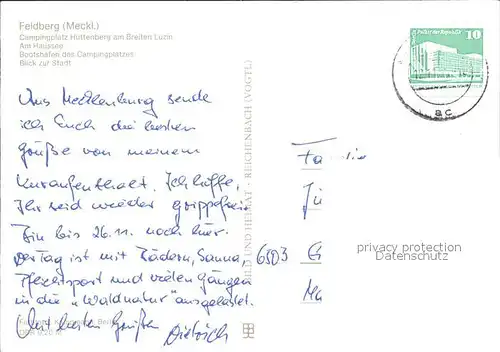 Feldberg (Meckl.)
Campingplatz Hüttenberg am Breiten Luzin
Am Haussee
Bootshafen des Campingplatzes
Blick zur Stadt
Palast der Republik
10
Aus Mecklenburg sende
ich Euch die besten
Grüße von meinem
Kuraufenthalt. Ich hoffe,
Ihr seid wieder grippefrei.
Bin bis 26.11. noch hier.
Der Tag ist mit Bädern, Sauna,
Pferdsport und vielen Gängen
in die "Waldnatur" ausgelastet.
Mit besten Grüßen Dietrich
BILD UND HEIMAT · REICHENBACH (VOGTL)
Familie
6503
privacy protection
Datenschutz